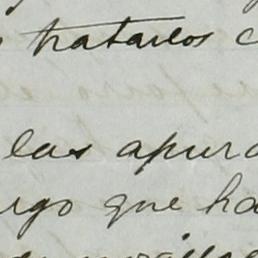 tratarlos c
las apura
rgo que ha